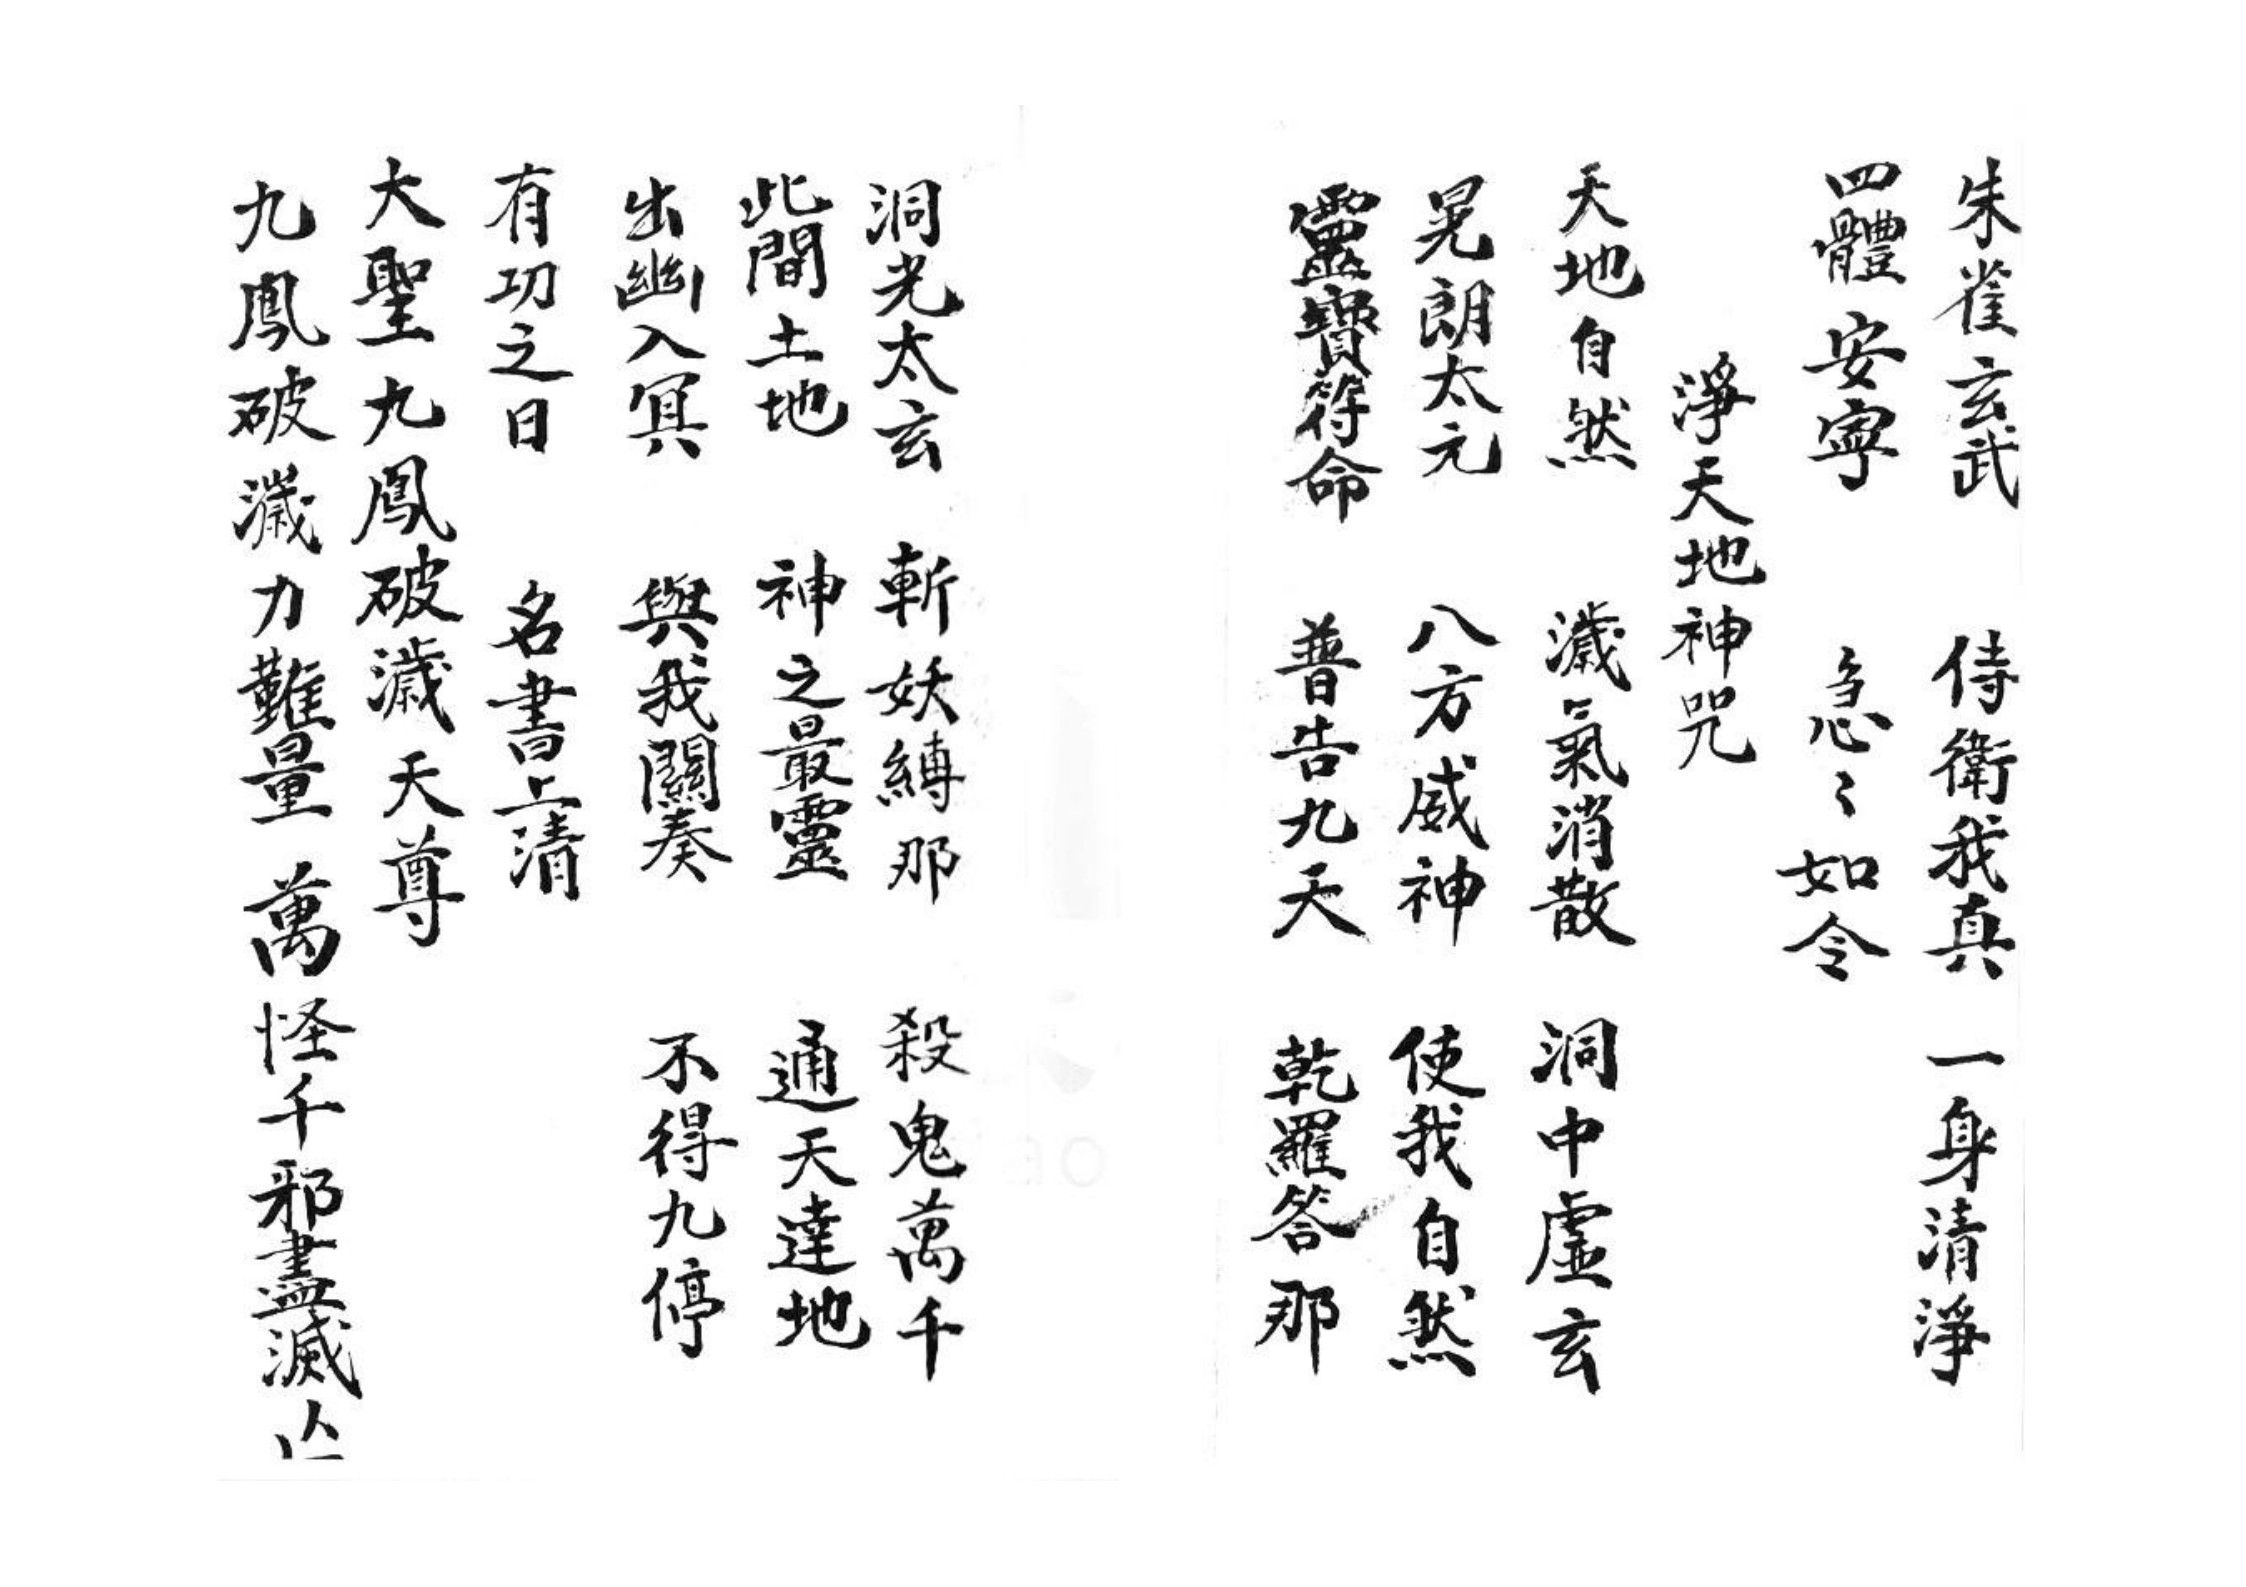 朱雀玄武 侍衛我真 一身清淨
四體安寧 急〻如令
淨天地神咒
天地自然 濊氣消散 洞中虛玄
晃朗太元 八方威神 使我自然
靈寶符命 普告九天 乾羅答那
洞光太玄 斬妖縛那 殺鬼萬千
此間土地 神之最靈 通天達地
出幽入冥 與我關奏 不得九停
有功之日 名書上清
大聖九鳳破濊天尊
九鳳破濊力難量 萬怪千邪盡滅亾